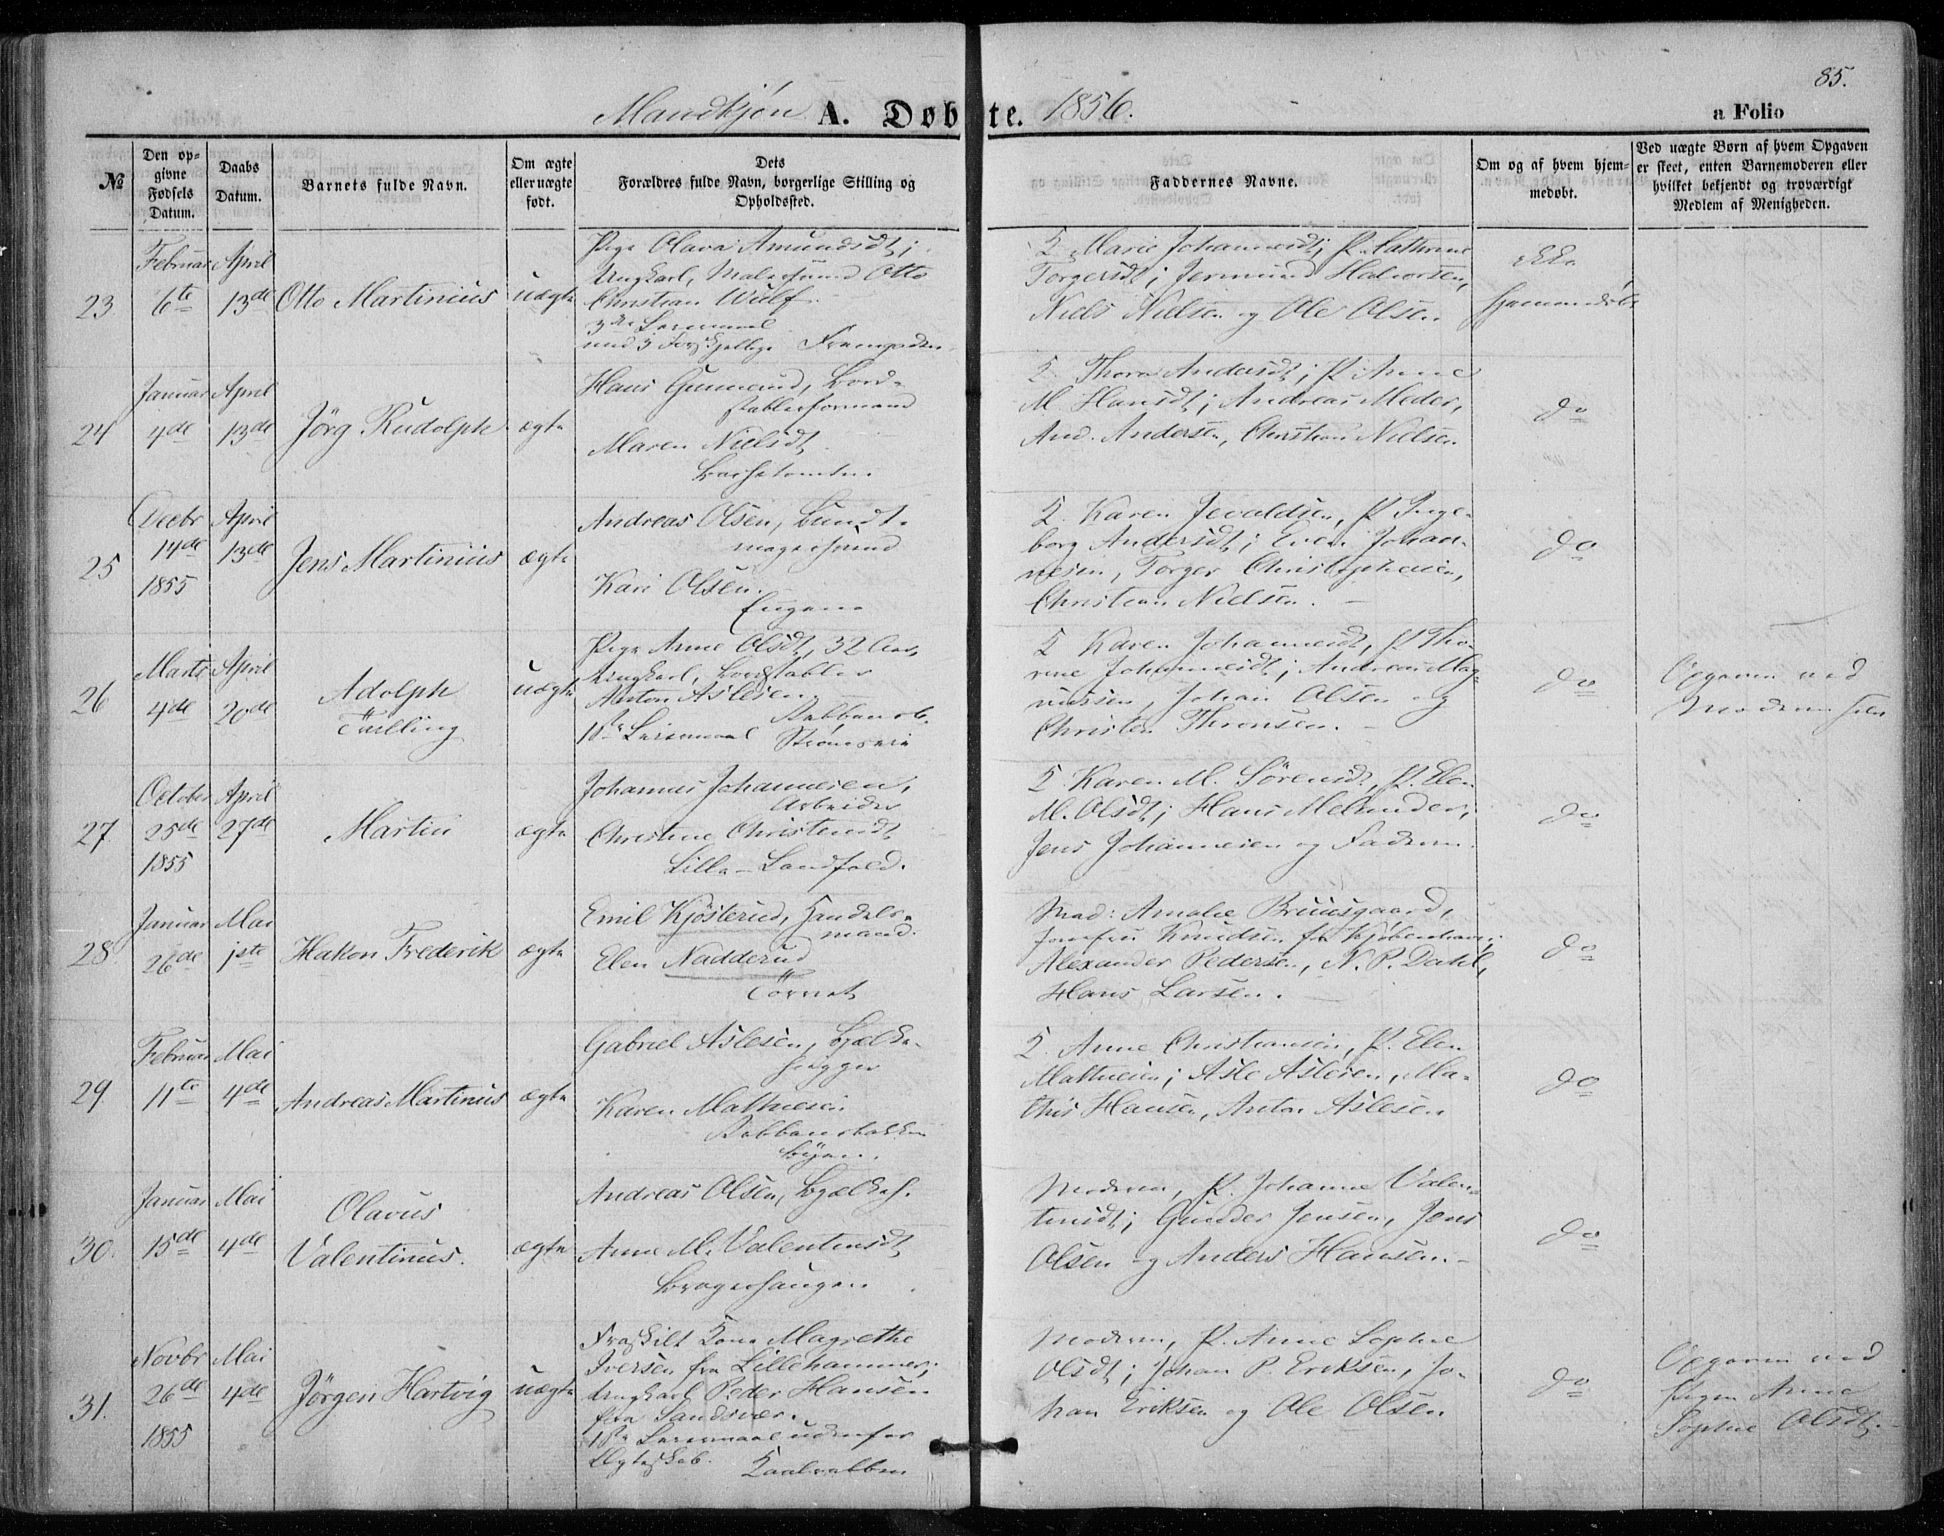 85.
Mandkjøn A. Døbte. 1856.
a Folio
№
Den opgivne Fødsels Datum.
Daabs Datum.
Barnets fulde Navn.
Om ægte eller uægte født.
Dets Forældres fulde Navn, borgerlige Stilling og Opholdssted.
Faddernes Navne.
Om og af hvem hjemmedøbt.
Ved uægte Børn af hvem Opgaven er skeet, enten Barnemoderen eller hvilket bekjendt og troværdigt Medlem af Menigheden.
23
Februar 6te
April 13de
Otto Martinius
uægte
Pige Olava Amundsdt;
Ungkarl, Malersvend Otto
Christian Wulf.
3die Leiermaal
med 3 forskjellige
K Marie Johannesdt; P. Cathrine
Torgersdt; Jermund Halvorsen,
Niels Nielsen og Ole Olsen
Ikke
hjemmedøbt
24
Januar 4de
April 13de
Jörg Rudolph
ægte
Hans Gunnerud, Bord-
stablerformand
Maren Nielsdt
K. Thora Andersdt; P. Anne
M. Hansdt; Andreas Meder,
And. Andersen, Christian Nielsen
do
25
Decbr 14de 1855
April 13de
Jens Martinius
ægte
Andreas Olsen, Bundt-
magersvend
Kari Olsen.
Engene
K. Karen Jevaldsen, P. Inge-
borg Andersdt; Even Johan-
nesen, Torger Christophersen,
Christian Nielsen.
do
26
Marts 4de
April 20de
Adolph
Tulling
uægte
Pige Anne Olsdt, 32 Aar,
Ungkarl, Bordstabler
Anton Aslesen
1ste Leiermaal
Strømsøie
K Karen Johannesdt, P. Tho-
rine Johannesdt; Andreas Mag-
nussen, Johan Olsen og
Christen Thronsen.
do
Opgaven ved
Moderen selv
27
October 25de 1855
April 27de
Martin
ægte
Johannes Johannesen,
Arbeider
Christine Christensdt
Lille-Landfald.
K Karen M. Sörensdt, P. Elen
M. Olsdt; Hans Melender,
Jens Johannesen og Faderen.
do
28
Januar 26de
Mai 1ste
Hakon Frederik
ægte
Emil Kjösterud, Handels-
mand.
Elen Nadderud
Törnet
Mad: Amalie Bruusgaard,
Jomfru Knudsen fra Kjøbenhavn;
Alexander Pedersen, N. P. Dahl,
Hans Larsen.
do
29
Februar 11te
Mai 4de
Andreas Martinus
ægte
Gabriel Aslesen, Bjelke-
hugger
Karen Mathiesen
Byen.
K. Anne Christiansen, P. Elen
Mathiesen; Asle Aslesen, Ma-
this Hansen, Anton Aslesen
do
30.
Januar 15de
Mai 4de
Olavus
Valentinus.
ægte
Andreas Olsen, Bjelkeh.
Anne M. Valentinsdt
Bragerhaugen
Moderen, P. Johanne Valen-
tinsdt; Gunder Jensen, Jens
Olsen og Anders Hansen.
do
31.
Novbr 26de 1855
Mai 4de
Jörgen Hartvig
uægte
Fraskilt Kone Magrethe
Iversen fra Lillehammer;
Ungkarl Peder Hansen
fra Sandsvær.
1ste Leiermaal udenfor
Ægteskab.
Moderen, P. Anne Sophie
Olsdt; Johan P. Eriksen, Jo-
han Eriksen og Ole Olsen
do
Opgaven ved
Pigen Anne
Sophie Olsdt.